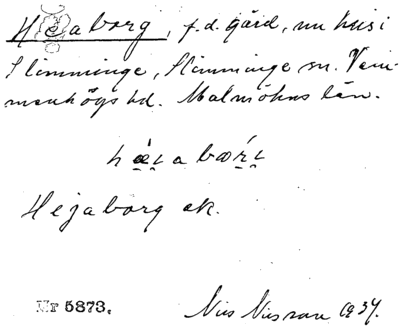 Hejaborg, f.d. gård, nu hus i
Slimminge, Slimminge sn. Vem-
menhögs hd. Malmöhus län.
Hejaborg ek.
Nr 5873.
Nils Nilsson 1934.